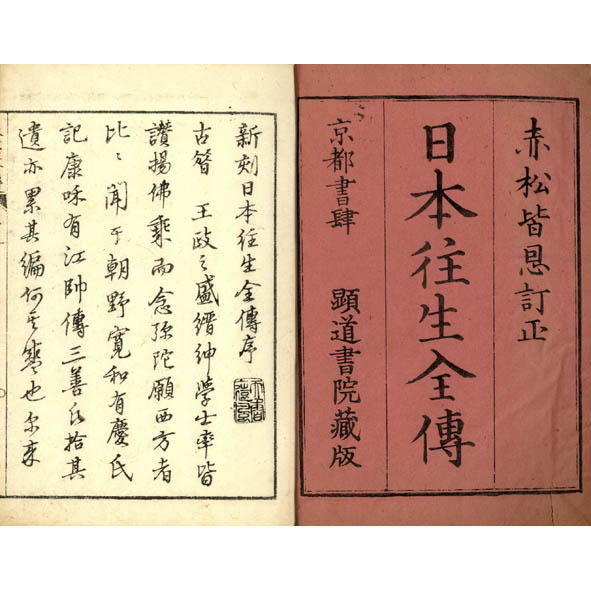 赤松皆恩訂正
日本往生全傳
京都書肆 顕道書院藏版
新刻日本往生全傳序
古昝 王政之盛縉紳學士率皆
讃揚佛乘而念弥陀願西方者
比〻聞于朝野寛和有慶氏
記康和有江帥傳三善氏拾其
遺亦累其編何其盛也尓来